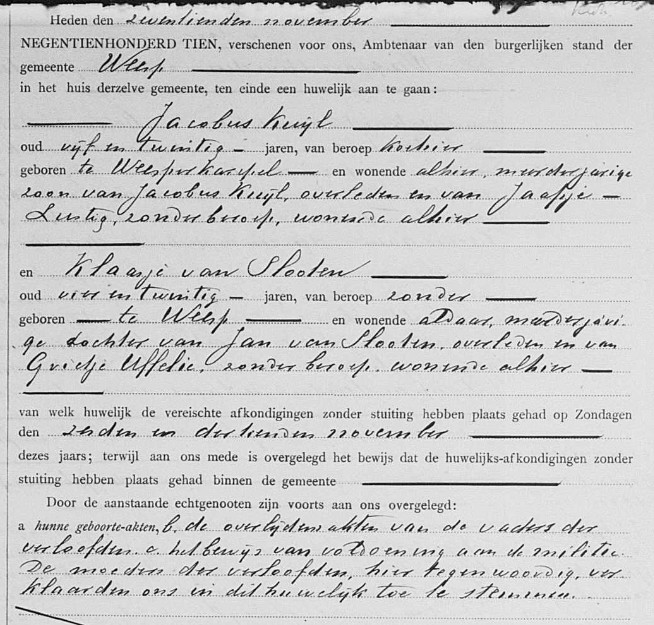 Heden den zeventienden november
NEGENTIENHONDERD TIEN, verschenen voor ons, Ambtenaar van den burgerlijken stand der
gemeente Weesp
in het huis derzelve gemeente, ten einde een huwelijk aan te gaan:
Jacobus Kuijl
oud vijf en twintig jaren, van beroep koetsier
geboren te Weesperkarspel en wonende alhier, meerderjarige
zoon van Jacobus Kuijl, overleden en van Jaapje
Lustig, zonder beroep, wonende alhier
en Klaasje van Slooten
oud vier en twintig jaren, van beroep zonder
geboren te Weesp en wonende aldaar, meerderjari-
ge dochter van Jan van Slooten, overleden en van
Grietje Uffelie, zonder beroep, wonende alhier
van welk huwelijk de vereischte afkondigingen zonder stuiting hebben plaats gehad op Zondagen
den zesden en dertienden november
dezes jaars; terwijl aan ons mede is overgelegd het bewijs dat de huwelijks-afkondigingen zonder
stuiting hebben plaats gehad binnen de gemeente
Door de aanstaande echtgenooten zijn voorts aan ons overgelegd:
a hunne geboorte-akten, b, de overlijdensakten van de vaders der
verloofden. c. het bewijs van voldoening aan de militie.
De moeders der verloofden, hier tegenwoordig, ver-
klaarden ons in dit huwelijk toe te stemmen.